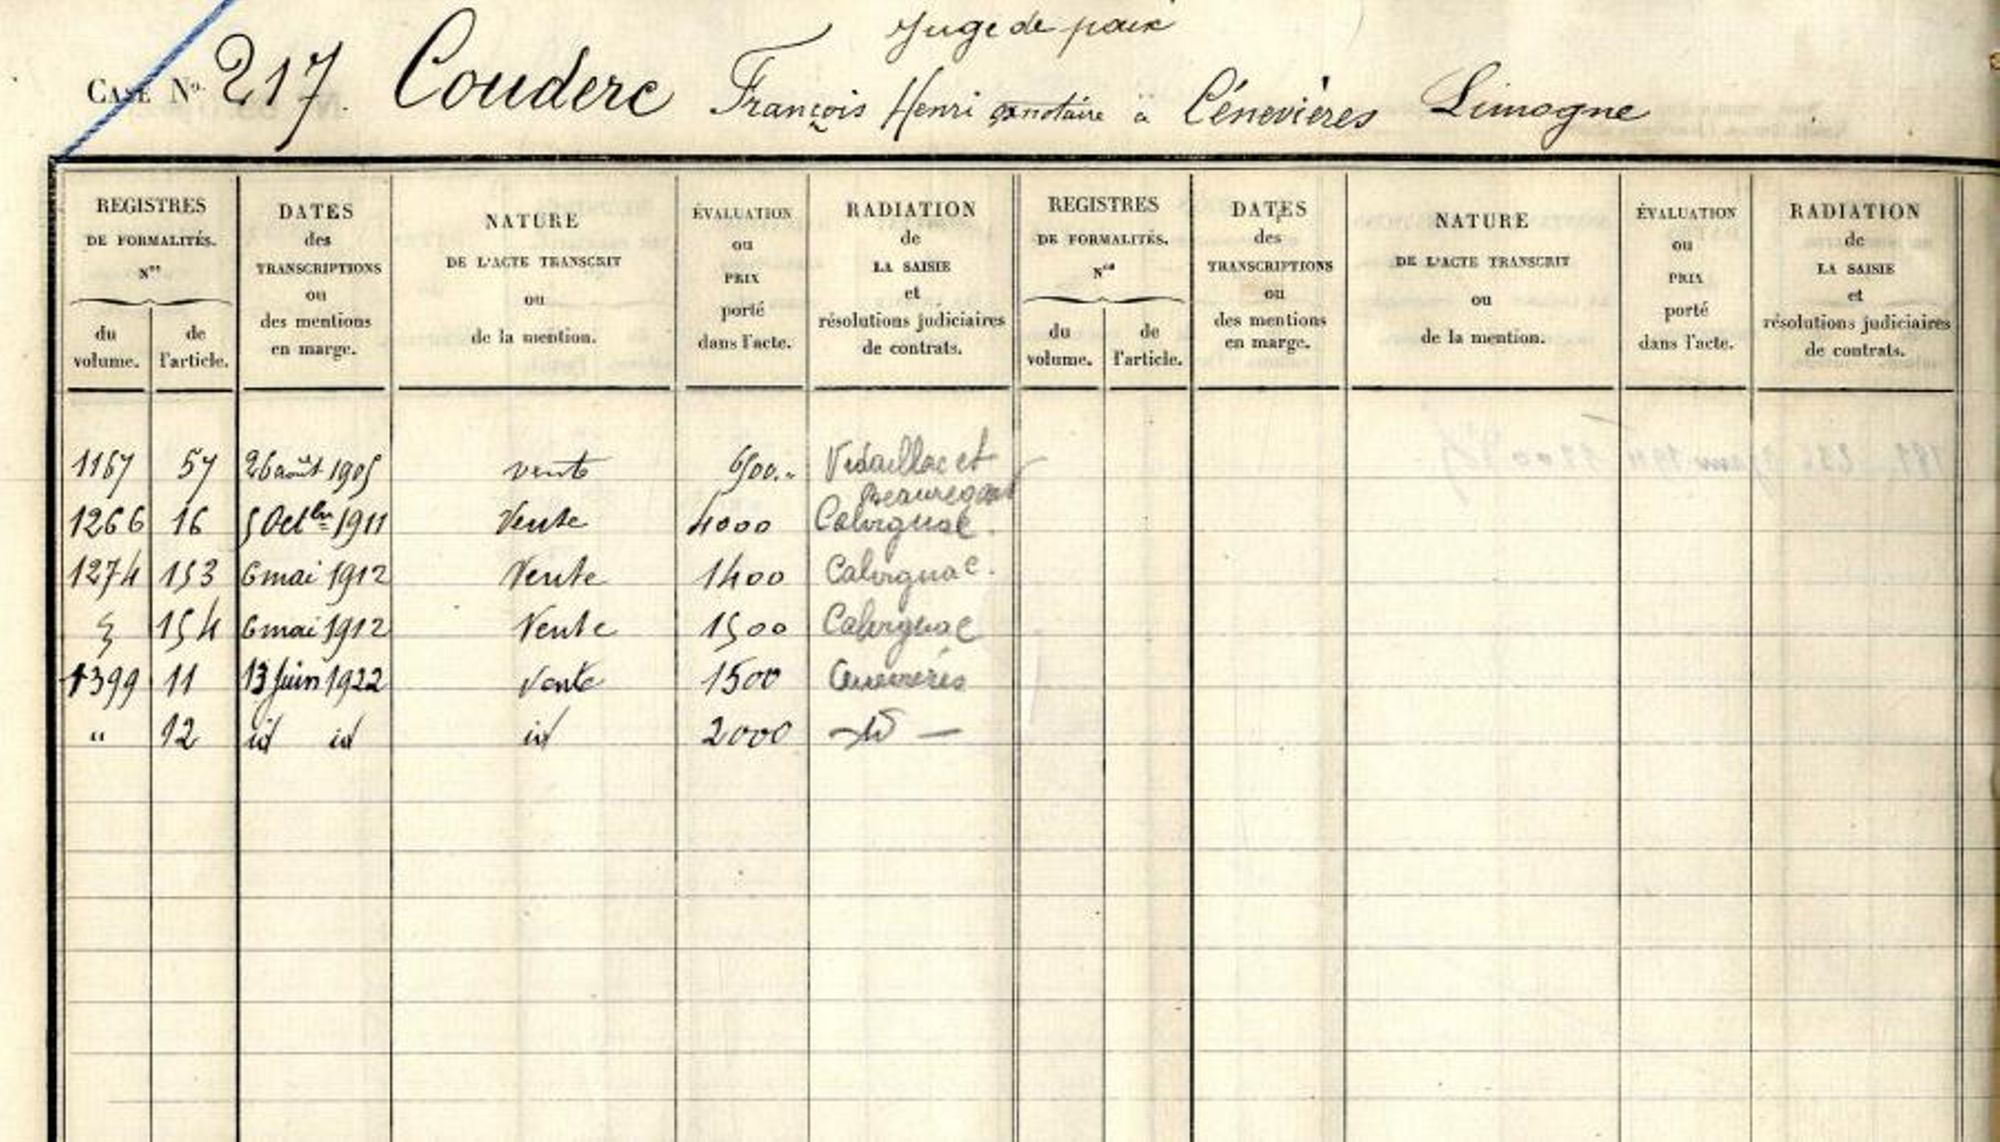 Juge de paix
CASE No. 217. Couderc François Henri notaire à Cénevières Limogne
REGISTRES
DE FORMALITÉS.
Nos
du
volume.
de
l'article.
DATES
des
TRANSCRIPTIONS
ou
des mentions
en marge.
NATURE
DE L'ACTE TRANSCRIT
ou
de la mention.
ÉVALUATION
ou
PRIX
porté
dans l'acte.
RADIATION
de
LA SAISIE
et
résolutions judiciaires
de contrats.
REGISTRES
DE FORMALITÉS.
Nos
du
volume.
de
l'article.
DATES
des
TRANSCRIPTIONS
ou
des mentions
en marge.
NATURE
DE L'ACTE TRANSCRIT
ou
de la mention.
ÉVALUATION
ou
PRIX
porté
dans l'acte.
RADIATION
de
LA SAISIE
et
résolutions judiciaires
de contrats.
1167 57 26 août 1905 vente Vidaillac et
Beauregard
1266 16 5 Octbre 1911 Vente 4000 Calvignac.
1274 153 6 mai 1912 Vente 1400 Calvignac.
154 6 mai 1912 Vente 1500 Calvignac
1399 11 13 juin 1922 Vente 1500
" 12 id id id 2000 - id -